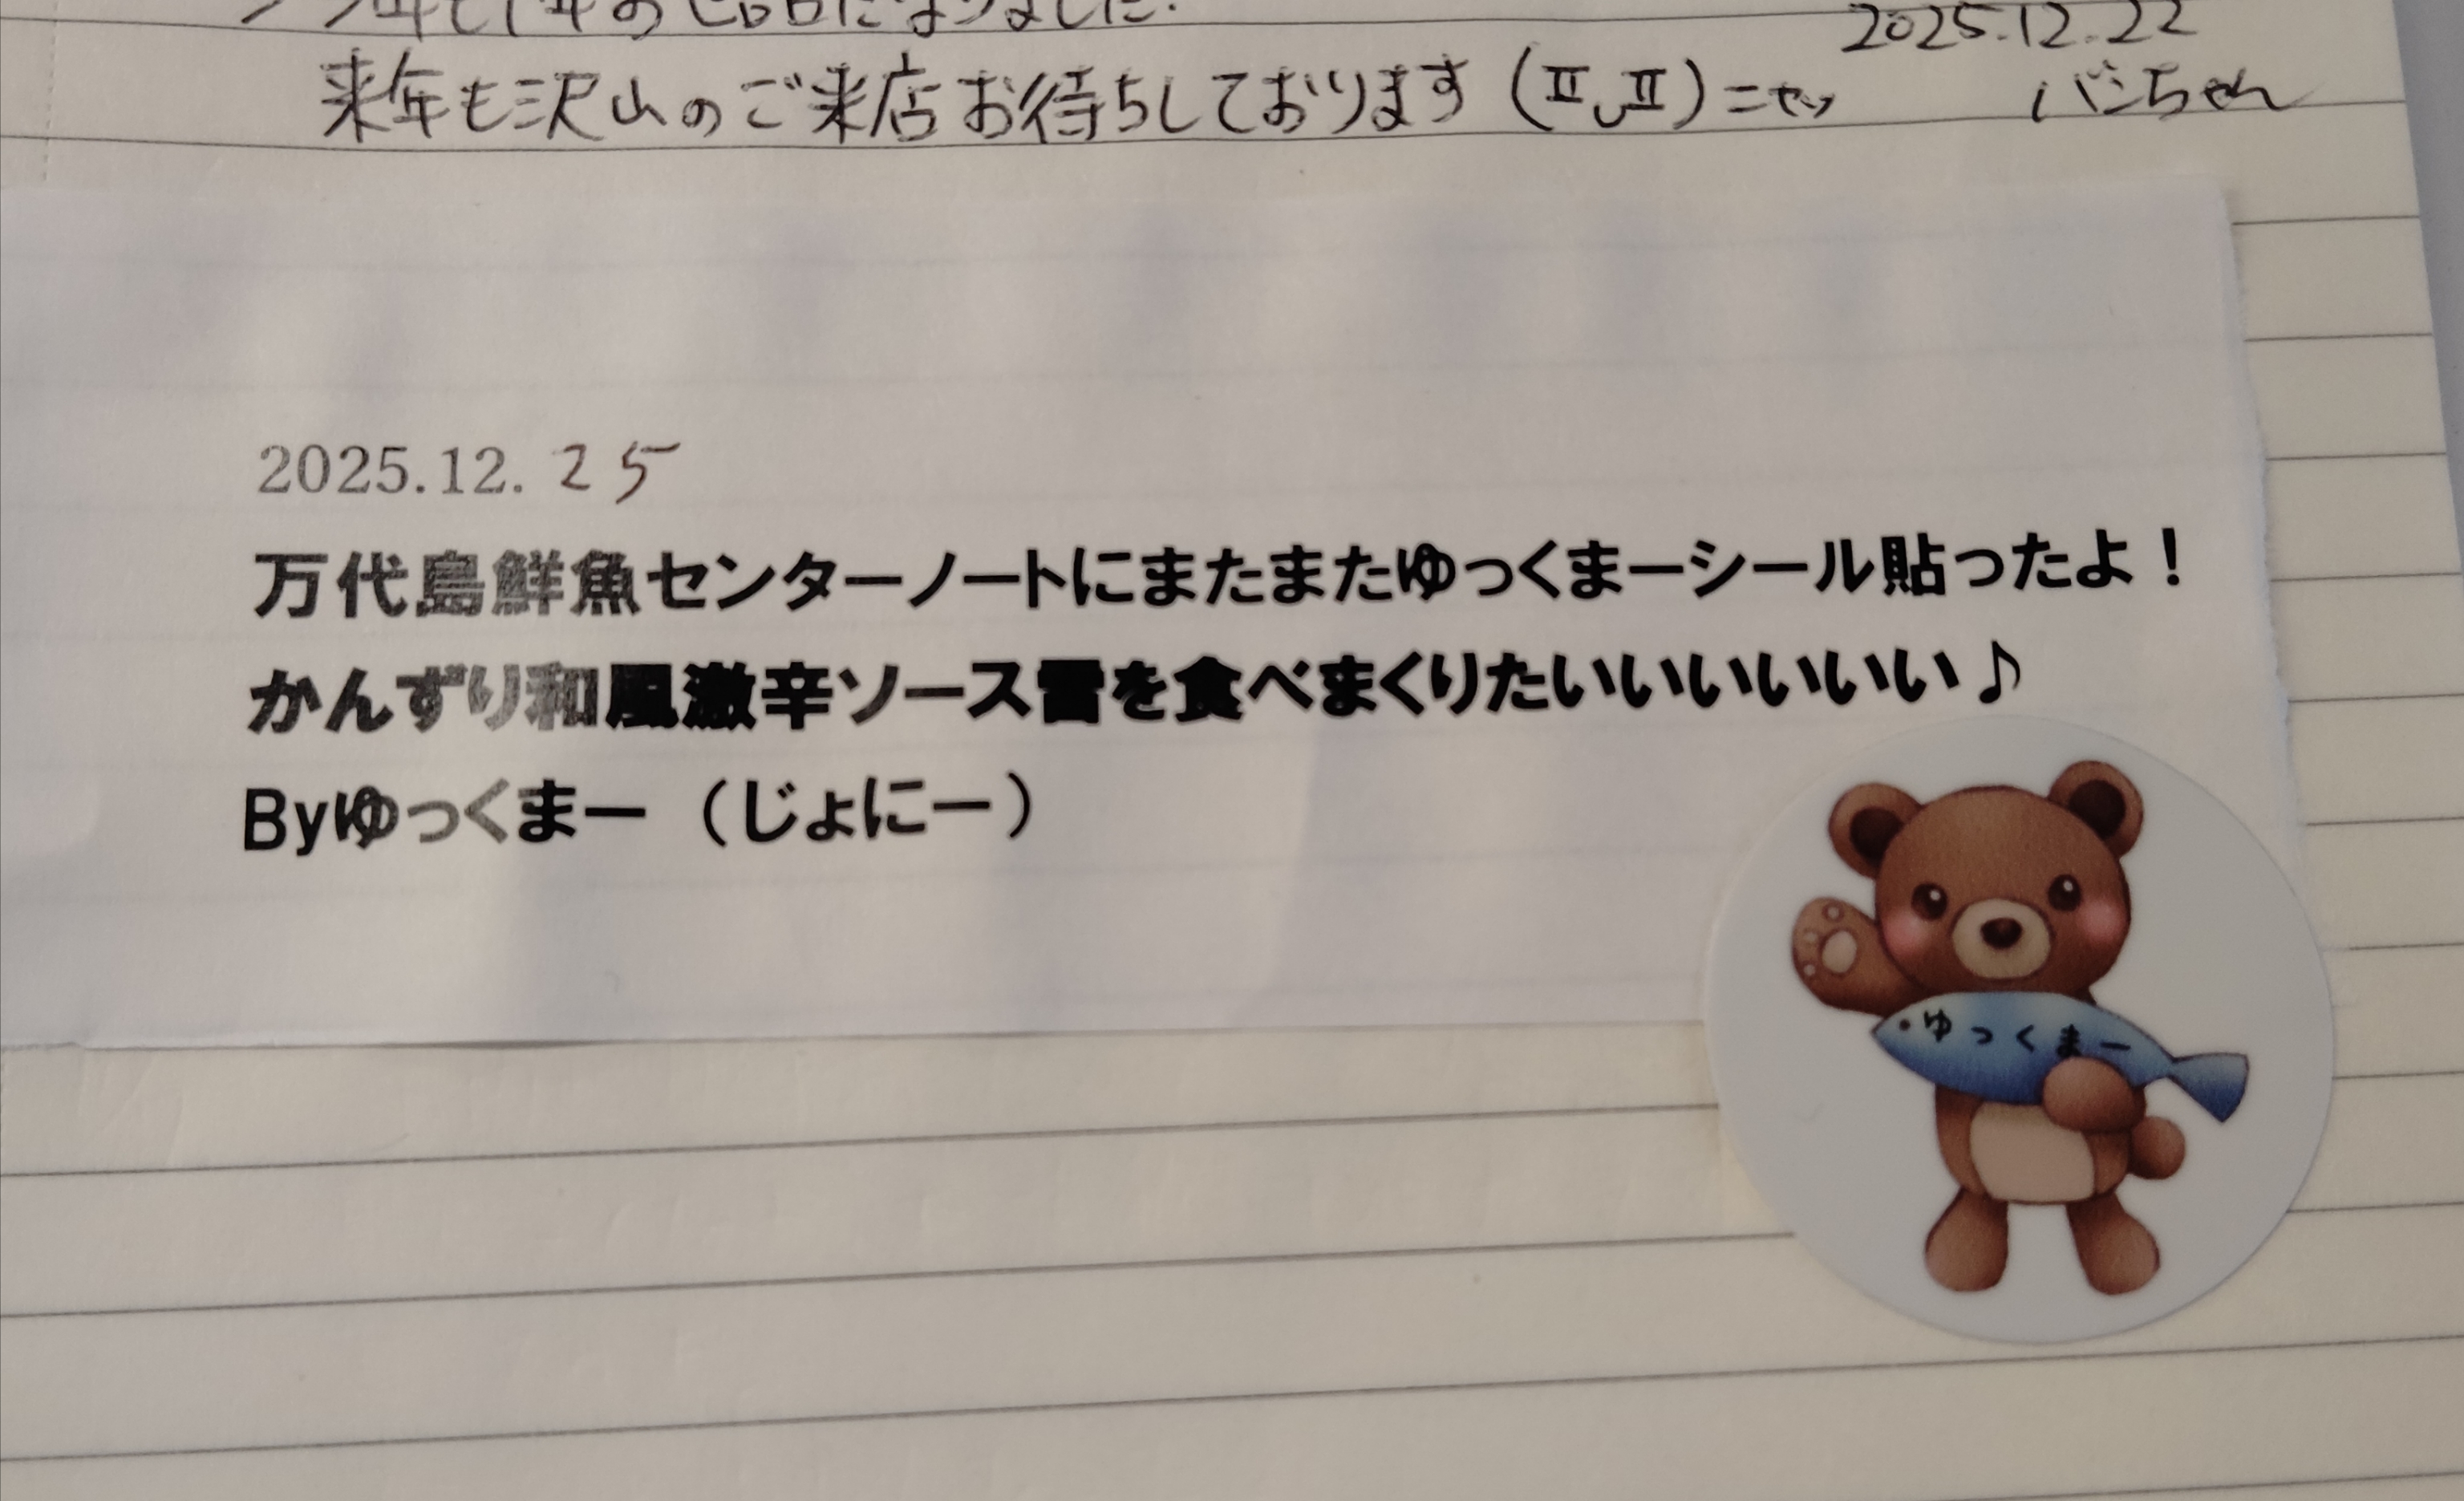 2025.12.22
来年も沢山のご来店お待ちしております(II◡II)ニセッ バンちゃん
2025.12.25
万代島鮮魚センターノートにまたまたゆっくまーシール貼ったよ！
かんずり和風激辛ソース雪を食べまくりたいいいいいい♪
Byゆっくまー（じょにー）
ゆっくまー